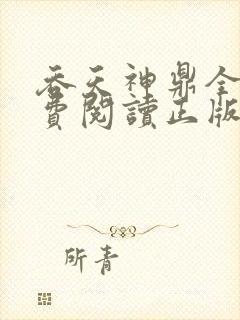 吞天神鼎全
費閱讀正版
所青